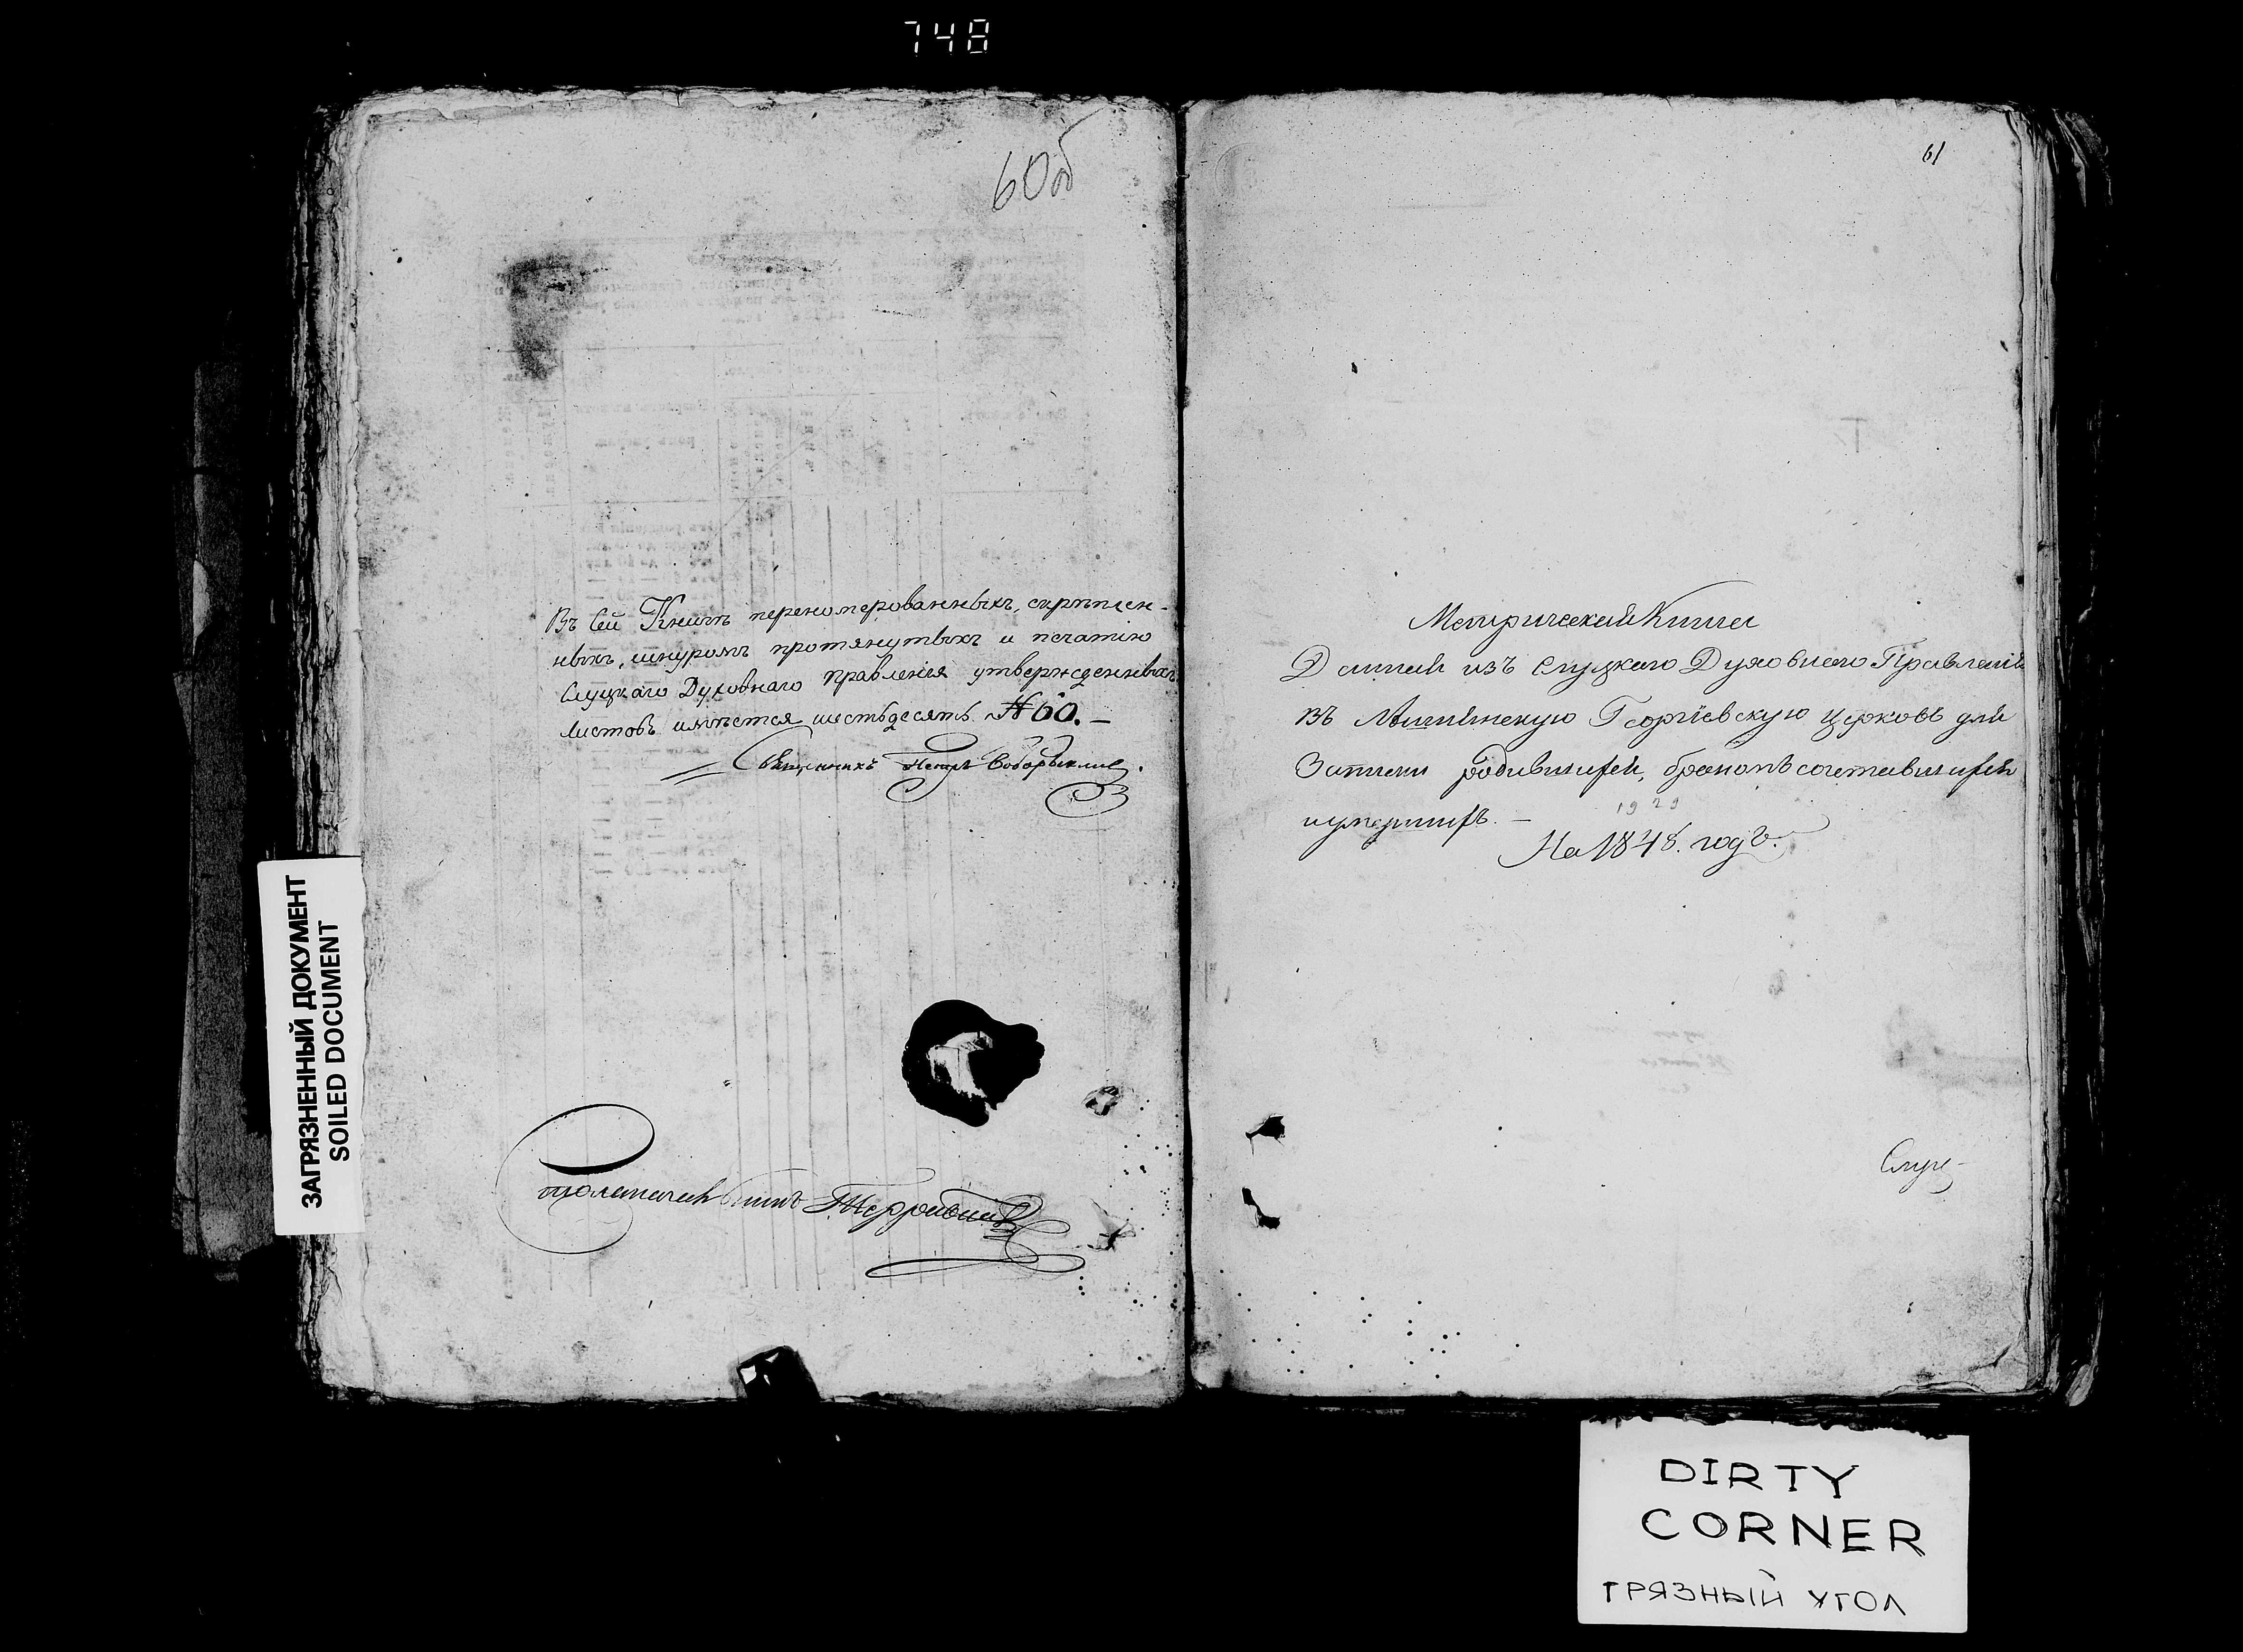 748
60об
Въ сей Книгѣ переномерованныхъ, скрѣплен-
ныхъ, шнуромъ протянутыхъ и печатію
Слуцкаго Духовнаго Правленія утвержденныхъ
листовъ имѣется шестьдесятъ. № 60. —
Священникъ Петръ
61
Метрическая Книга
Данная изъ Слуцкаго Духовнаго Правленія
въ Георгіевскую церковь для
Записки родившихся, бракомъ сочетавшихся
и умершихъ. —
1929
На 1848. годъ.
ЗАГРЯЗНЕННЫЙ ДОКУМЕНТ
SOILED DOCUMENT
DIRTY
CORNER
ГРЯЗНЫЙ УГОЛ